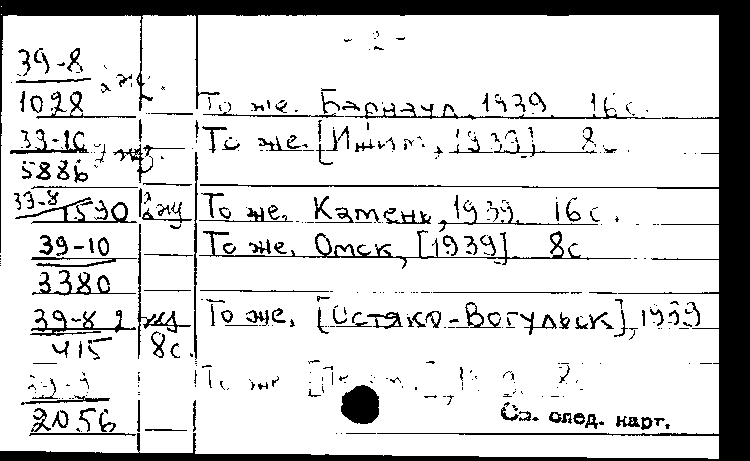 - 2 -
39-8
1028 2 жз. То же. Барнаул, 1939. 16с.
39-10
5886 2 жз. То же. [Ишим, 1939]. 8с.
39-8
1590 2 жз То же. Камень, 1939. 16с.
39-10
3380 То же. Омск, [1939]. 8с
39-8 2 жз То же. [Остяко-Вогульск], 1939
415 8с.
То же
2056
См. след. карт.